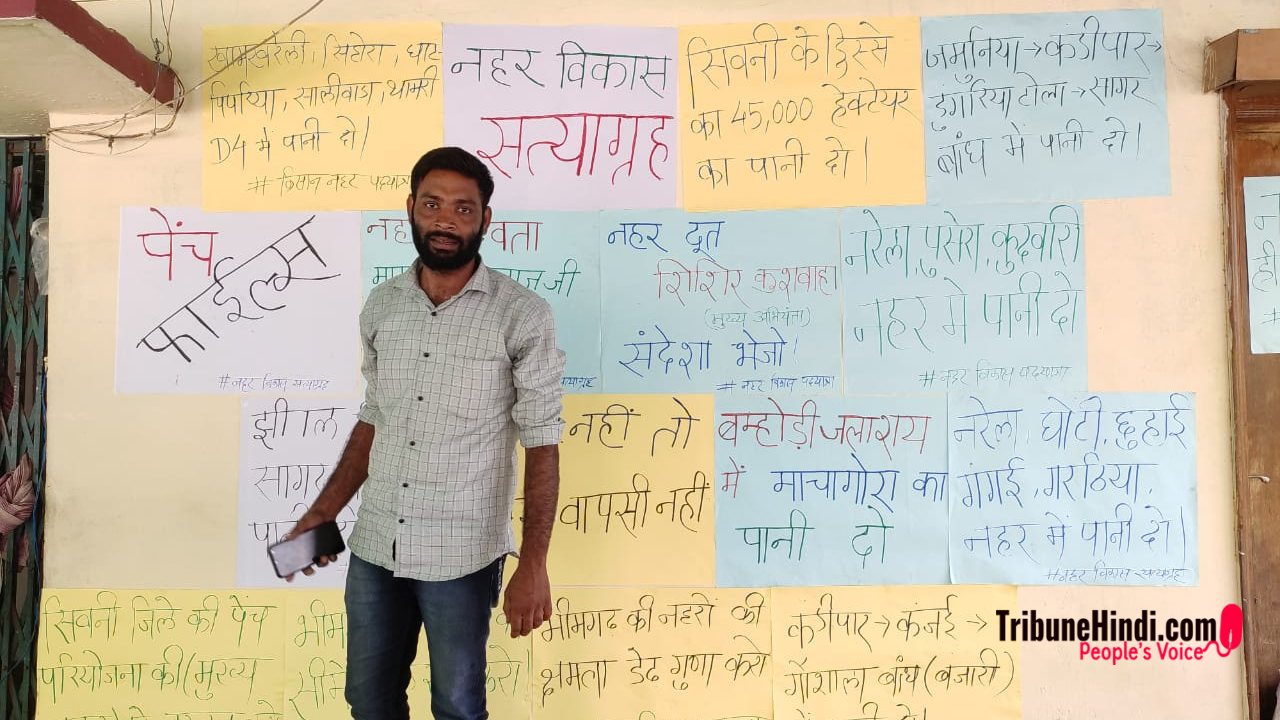 खामखरेली, सिहोरा, घाट-
पिपरिया, सालीवाडा, थामरी
D4 में पानी दो।
# किसान नहर पदयात्रा
नहर विकास
सत्याग्रह
सिवनी के हिस्से
का 45,000 हेक्टेयर
का पानी दो।
जमुनिया→कंडीपार→
डुंगरिया टोला→सागर
बांध में पानी दो।
पेंच
फाईल्स
#नहर विकास सत्याग्रह
नहर दूत
शिशिर कुशवाहा
(मुख्य अभियंता)
संदेशा भेजो।
# नहर विकास पदयात्रा
नरेला, पुसेरा, कुदवारी
नहर में पानी दो
#नहर विकास पदयात्रा
झीगल
सागर
नहीं तो
वापसी नहीं
बम्होड़ी जलाशय
में माचागोरा का
पानी दो
नरेला, घोटी, छुहाई
गंगई, गरठिया,
नहर में पानी दो।
#नहर विकास सत्याग्रह
सिवनी जिले की पेंच
परियोजना की (मुख्य
भीमगढ़ की नहरों की
क्षमता डेढ़ गुणा करो
कंडीपार→कंजई→
गौशाला बांध (बंजारी)
में पानी दो।
TribuneHindi.com
People's Voice